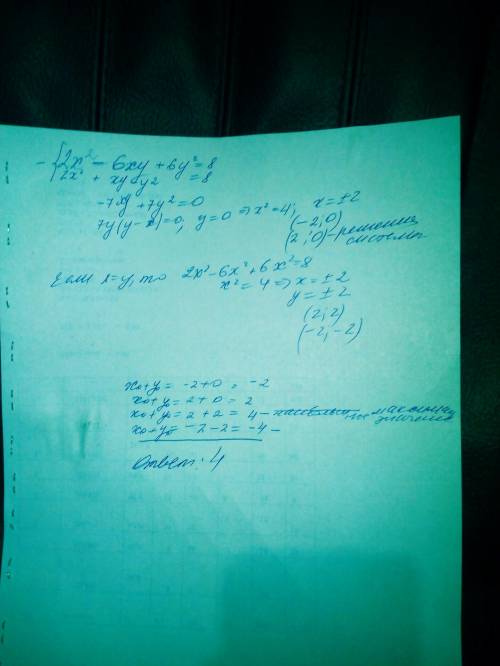 - { 2x² - 6xy + 6y² = 8
2x² + xy - y² = 8
-7xy + 7y² = 0
7y(y-x)=0, y=0 ⇒ x²=4; x=±2
(-2;0)
(2;0) - решения системы
Если x=y, то 2x²-6x²+6x²=8
x²=4 ⇒ x=±2
y=±2
(2;2)
(-2,-2)
x₀+y₀= -2+0 = -2
x₀+y₀=2+0=2
x₀+y₀=2+2=4 - значение
x₀+y₀=-2-2=-4 -
Ответ: 4